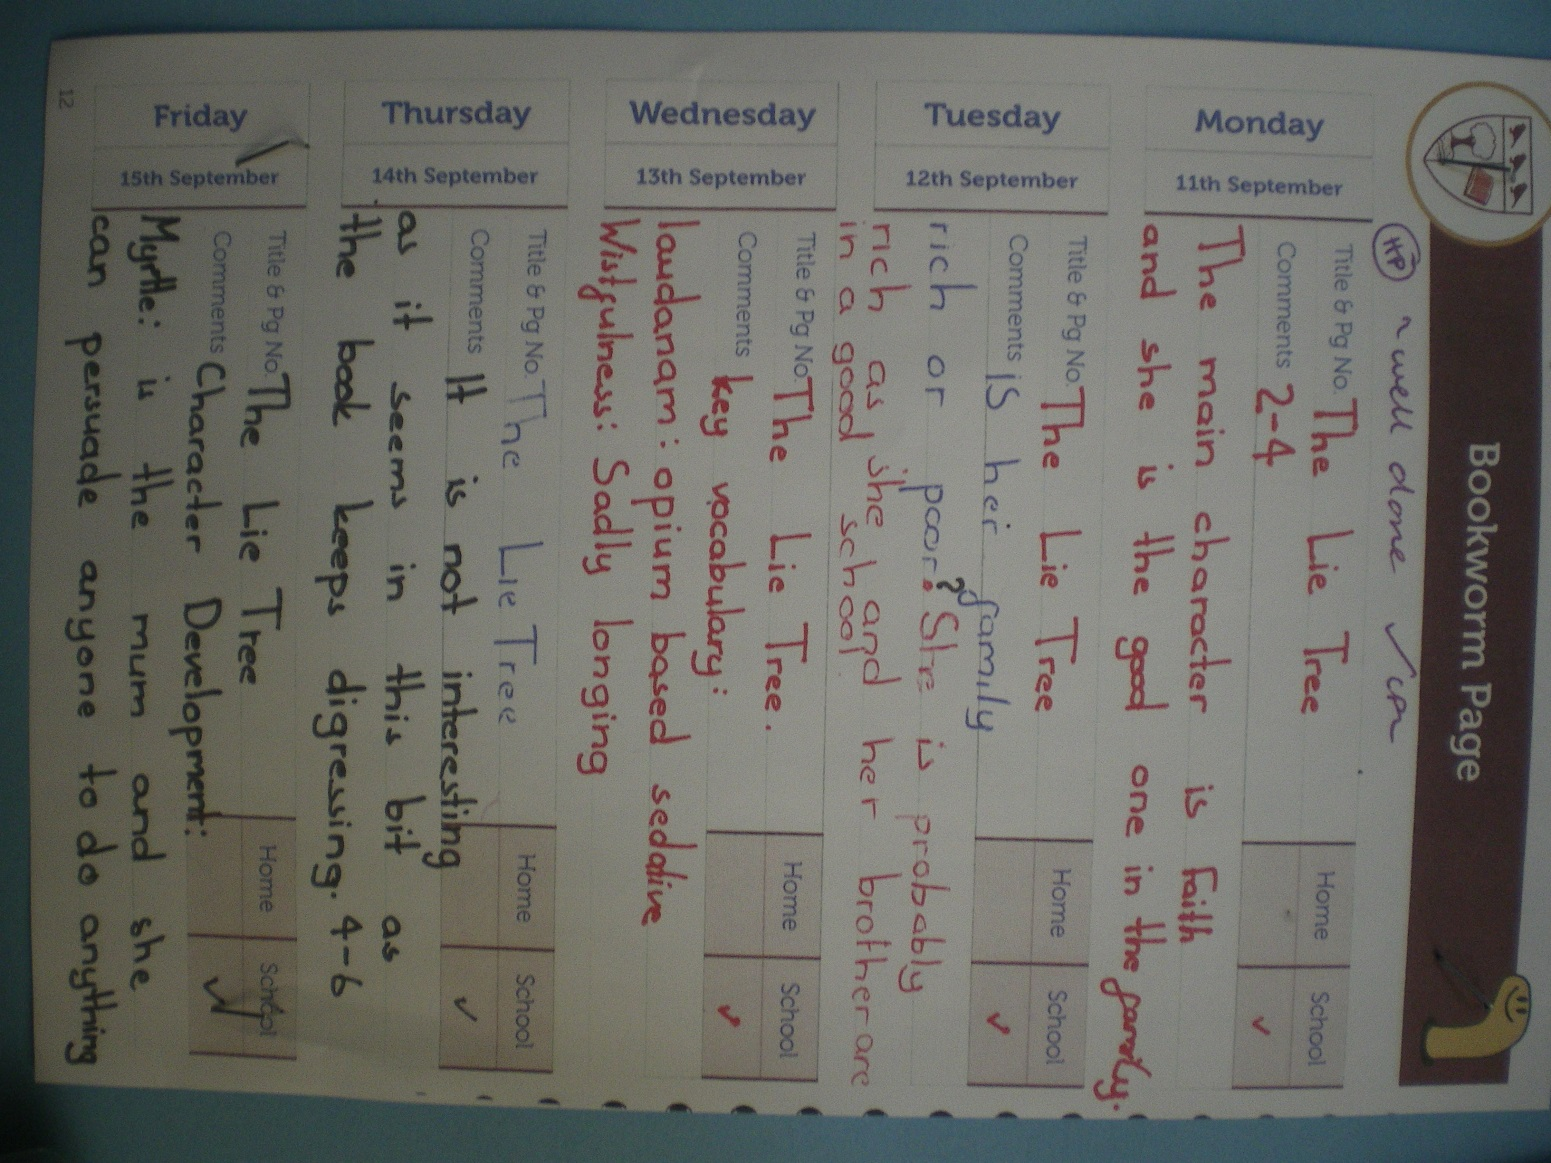 Bookworm Page
HP ~ well done ✓
Monday
11th September
Title & Pg No. The Lie Tree
Comments 2-4
Home School
✓
The main character is Faith
and she is the good one in the family.
Tuesday
12th September
Title & Pg No. The Lie Tree
Comments is her family
Home School
✓
rich or poor? She is probably
rich as she and her brother are
in a good school.
Wednesday
13th September
Title & Pg No. The Lie Tree.
Comments key vocabulary:
Home School
✓
laudanam: opium based sedative
Wistfulness: Sadly longing
Thursday
14th September
Title & Pg No. The Lie Tree
Comments It is not interesting
Home School
✓
as it seems in this bit as
the book keeps digressing. 4-6
Friday
15th September
Title & Pg No. The Lie Tree
Comments Character Development:
Home School
✓
Myrtle: is the mum and she
can persuade anyone to do anything
12